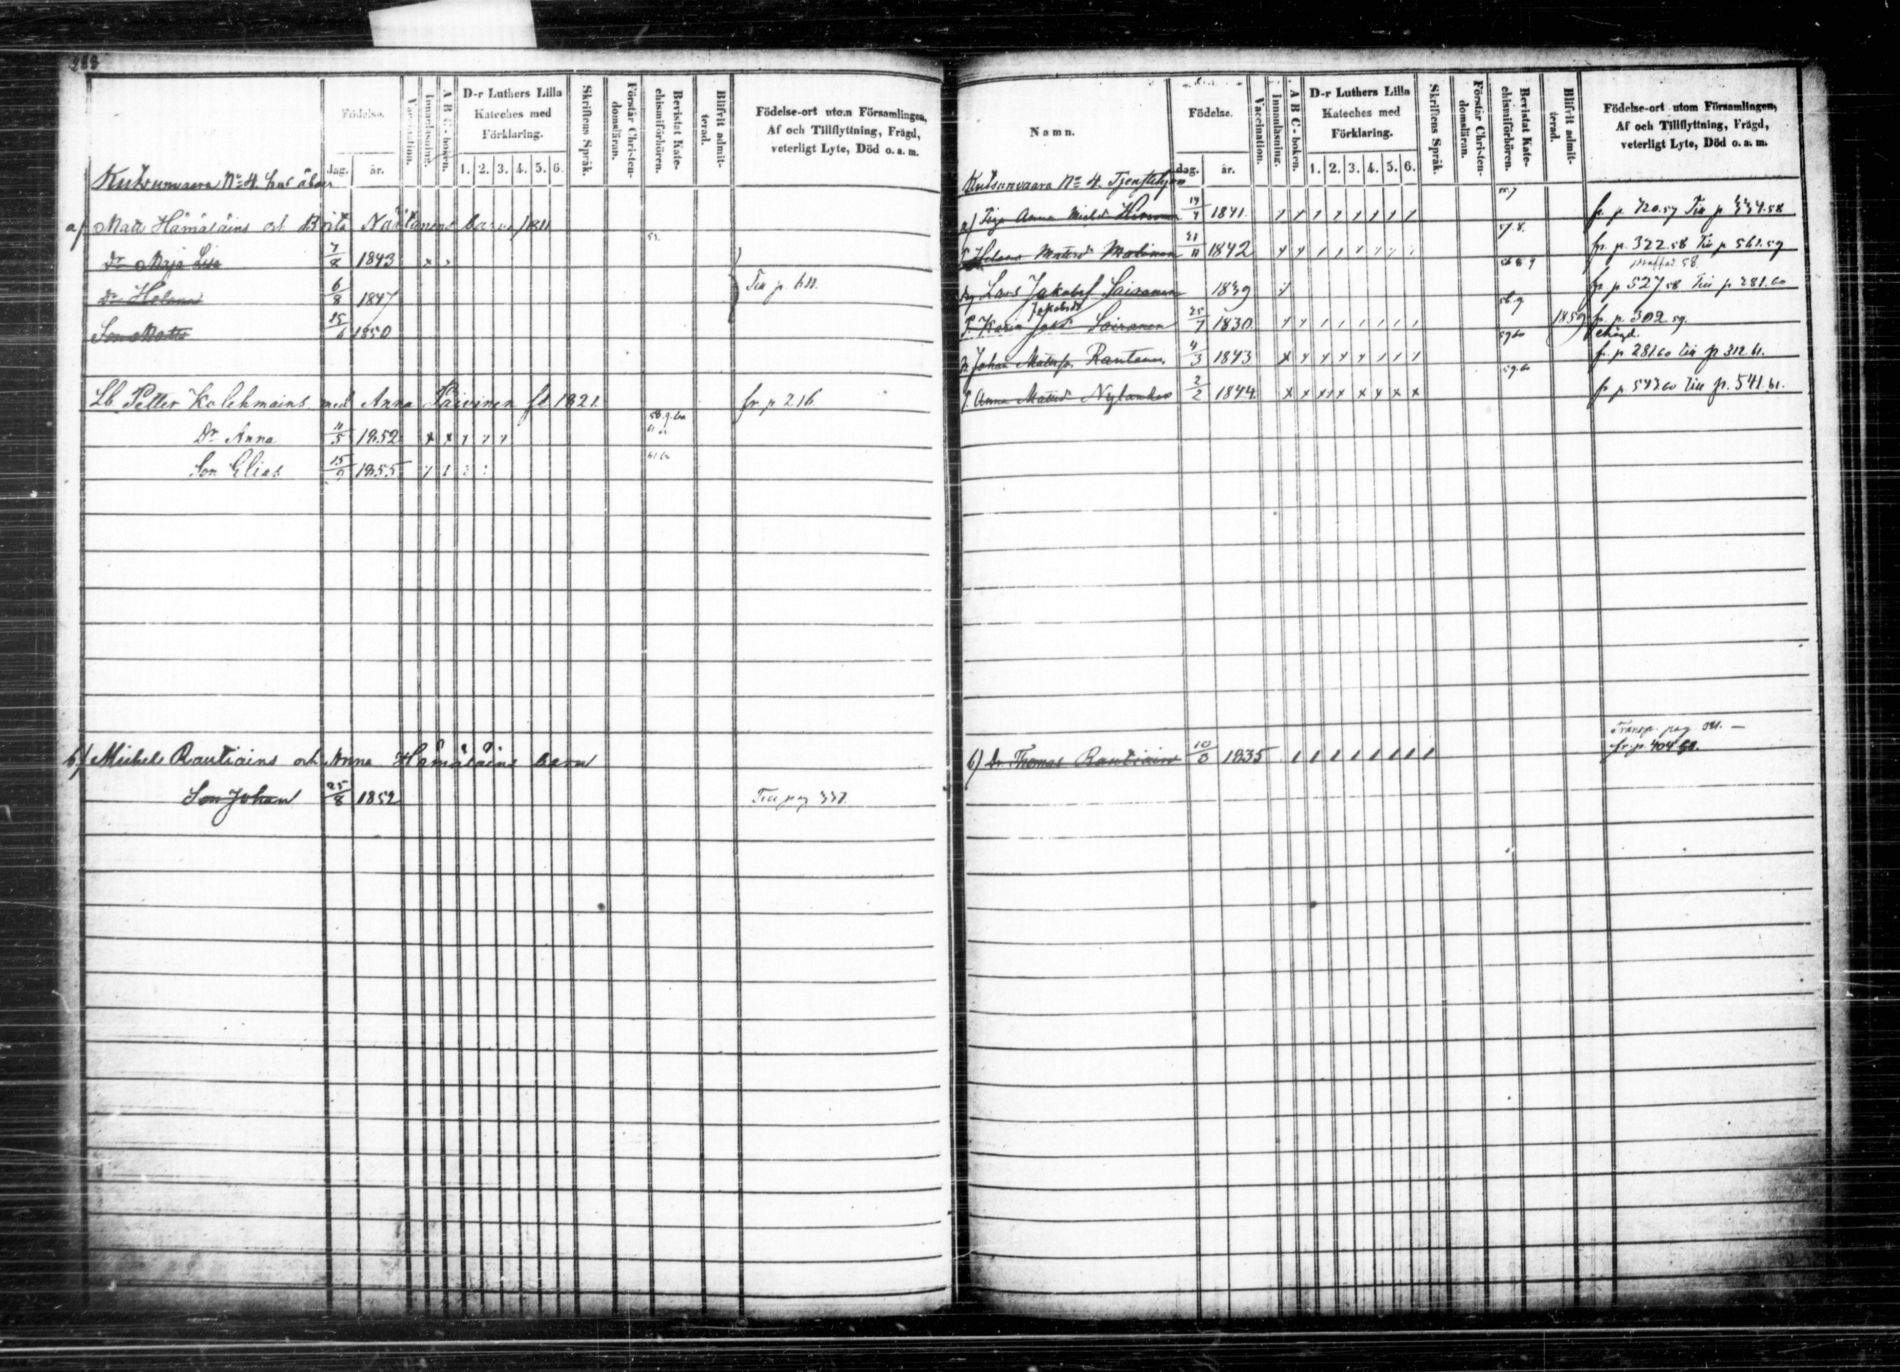 Födelse.
dag. år.
Vaccination.
Innanläsning.
A B C-boken.
D-r Luthers Lilla
Kateches med
Förklaring.
1. 2. 3. 4. 5. 6.
Skriftens Språk.
Förstår Christen-
domsläran.
Bevistat Kate-
chismiförhören.
Blifvit admit-
terad.
Födelse-ort utom Församlingen,
Af och Tillflyttning, Frägd,
veterligt Lyte, Död o. a. m.
Kutsunvaara No 4.
a) Matts Hämäläins och Brita Näätänens barn
Dr Maja Lisa 7/8 1843
Dr Helena 6/8 1847 Till p. 611.
Son Matts 15/6 1850
Lb Petter Kolehmains med Anna Päivinen fl 1821. fr. p 216.
Dr Anna 11/5 1852
Son Elias 15/9 1855
b) Michel Rautiains och Anna Hämäläins barn
Son Johan 25/8 1852 Till pag 338.
Namn.
Födelse.
dag. år.
Vaccination.
Innanläsning.
A B C-boken.
D-r Luthers Lilla
Kateches med
Förklaring.
1. 2. 3. 4. 5. 6.
Skriftens Språk.
Förstår Christen-
domsläran.
Bevistat Kate-
chismiförhören.
Blifvit admit-
terad.
Födelse-ort utom Församlingen,
Af och Tillflyttning, Frägd,
veterligt Lyte, Död o. a. m.
Kutsunvaara No 4.
a) Piga Anna 1841 fr. p. 720.57 Till p. 334.58
P. Helena Mattsd 21/11 1842 fr. p. 322.58 Till p 561.59
Lars Jakobsf Sairanen 1839 fr p 527 58 Till p 281.60
Jakobsdr
P. Karin Sairanen 25/7 1830 1859 fr. p. 302 59.
Johan Mattsf. Rautanen 4/3 1843 fr. p 281.60 till p 312.61.
P. Anna Mattsd Nylander 2/2 1844 fr p 543 60 till p. 541.61.
b) Dr Thomas Rautiain 10/3 1835 fr. p. 404